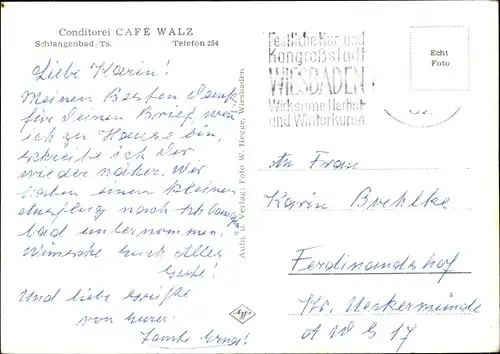 Conditorei CAFÉ WALZ
Schlangenbad/Ts. Telefon 254
Liebe Karin!
Meinen Besten Dank
für Deinen Brief, wenn
ich zu Hause bin,
schreibe ich Dir
wieder näher. Wir
haben einen kleinen
Ausflug nach Schlangen
bad unternommen,
Wünsche Euch Alles
Gute!
Und liebe Grüße
von Eurer
Tante Erna!
Aufn. u. Verlag: Foto W. Herge, Wiesbaden
Festliche Kur- und
Kongreßstadt
WIESBADEN
Wirksame Herbst-
und Winterkuren
Echt
Foto
An Frau
Karin Brehlke
Ferdinandshof
Kr. Ueckermünde